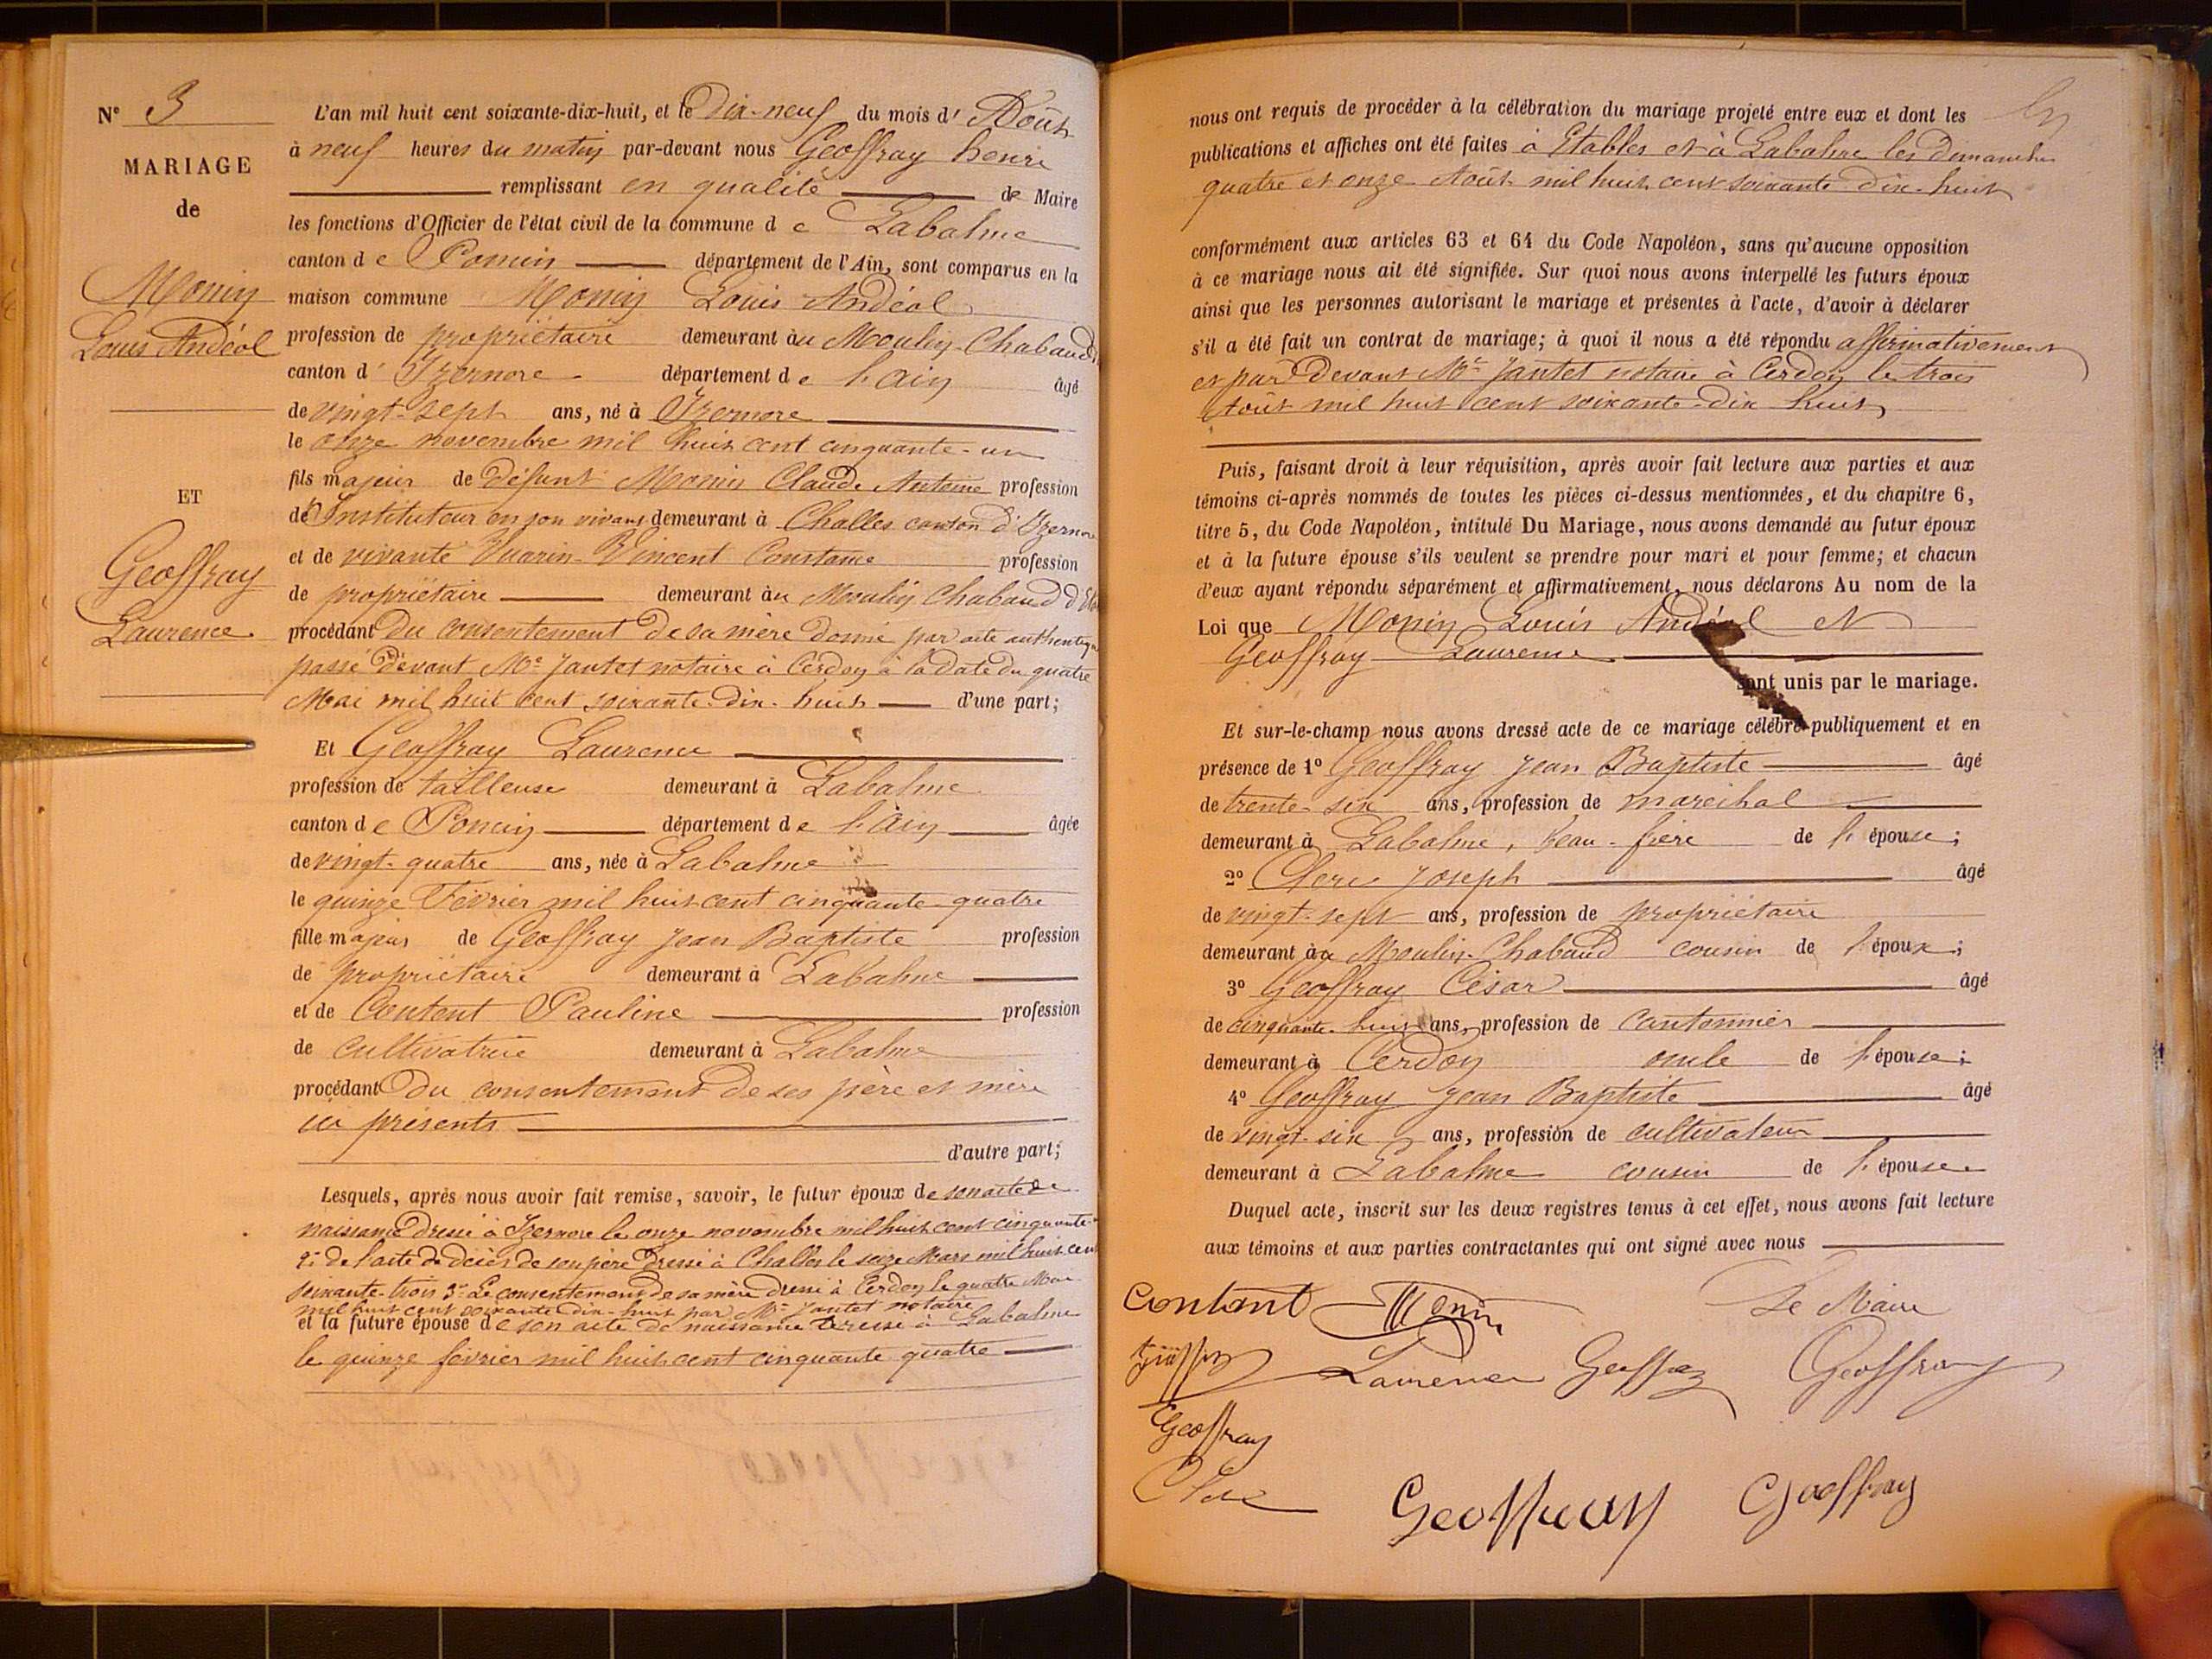 N° 3
MARIAGE
de
Monin
Louis Andéol
ET
Geoffray
Laurence
L'an mil huit cent soixante-dix-huit, et le Dix-neuf du mois d' Août
à neuf heures du matin par-devant nous Geoffray henri
remplissant en qualité de Maire
les fonctions d'Officier de l'état civil de la commune de Labalme
canton de Poncin département de l'Ain, sont comparus en la
maison commune Monin Louis Andéol
profession de propriétaire demeurant au Moulin-Chabaud
canton d' Izernore département de l'ain âgé
de vingt-sept ans, né à Izernore
le onze novembre mil huit cent cinquante-un
fils majeur de défunt Monin Claude Antoine profession
de Instituteur en son vivant demeurant à Challes canton d'Izernore
et de vivante Vuarin-Vincent Constance profession
de propriétaire demeurant au Moulin Chabaud
procédant Du consentement de sa mère donné par acte authentique
passé devant Me Jantet notaire à Cerdon à la date du quatre
Mai mil huit cent soixante-dix-huit d'une part;
Et Geoffray Laurence
profession de tailleuse demeurant à Labalme
canton de Poncin département de l'Ain âgée
de vingt-quatre ans, née à Labalme
le quinze Février mil huit cent cinquante-quatre
fille majeur de Geoffray Jean Baptiste profession
de propriétaire demeurant à Labalme
et de Content Pauline profession
de cultivatrice demeurant à Labalme
procédant Du consentement de ses père et mère
ici présents
d'autre part;
Lesquels, après nous avoir fait remise, savoir, le futur époux de son acte de
naissance dressé à Izernore le onze novembre mil huit cent cinquante-
2° de l'acte de décès de son père dressé à Challes le seize Mars mil huit cent
soixante-trois 3° Le consentement de sa mère dressé à Cerdon le quatre Mai
mil huit cent soixante-dix-huit par Me Jantet notaire
et la future épouse de son acte de naissance dressé à Labalme
le quinze février mil huit cent cinquante quatre
nous ont requis de procéder à la célébration du mariage projeté entre eux et dont les
publications et affiches ont été faites à Etables et à Labalme les Dimanches
quatre et onze Août mil huit cent soixante-dix-huit
conformément aux articles 63 et 64 du Code Napoléon, sans qu'aucune opposition
à ce mariage nous ait été signifiée. Sur quoi nous avons interpellé les futurs époux
ainsi que les personnes autorisant le mariage et présentes à l'acte, d'avoir à déclarer
s'il a été fait un contrat de mariage; à quoi il nous a été répondu affirmativement
et par Devant Me Jantet notaire à Cerdon le trois
Août mil huit cent soixante-dix huit
Puis, faisant droit à leur réquisition, après avoir fait lecture aux parties et aux
témoins ci-après nommés de toutes les pièces ci-dessus mentionnées, et du chapitre 6,
titre 5, du Code Napoléon, intitulé Du Mariage, nous avons demandé au futur époux
et à la future épouse s'ils veulent se prendre pour mari et pour femme; et chacun
d'eux ayant répondu séparément et affirmativement, nous déclarons Au nom de la
Loi que Monin Louis Andéol et
Geoffray Laurence
sont unis par le mariage.
Et sur-le-champ nous avons dressé acte de ce mariage célébré publiquement et en
présence de 1° Geoffray Jean Baptiste âgé
de trente-six ans, profession de maréchal
demeurant à Labalme, beau-frère de l'épouse;
2° Clerc Joseph âgé
de vingt-sept ans, profession de propriétaire
demeurant au Moulin-Chabaud cousin de l'époux;
3° Geoffray César âgé
de cinquante-huit ans, profession de Cantonnier
demeurant à Cerdon oncle de l'épouse;
4° Geoffray Jean Baptiste âgé
de vingt-six ans, profession de cultivateur
demeurant à Labalme cousin de l'épouse
Duquel acte, inscrit sur les deux registres tenus à cet effet, nous avons fait lecture
aux témoins et aux parties contractantes qui ont signé avec nous
Contant Monin Le Maire
Laurence Geoffray Geoffray
Geoffray
Clerc Geoffray Geoffray